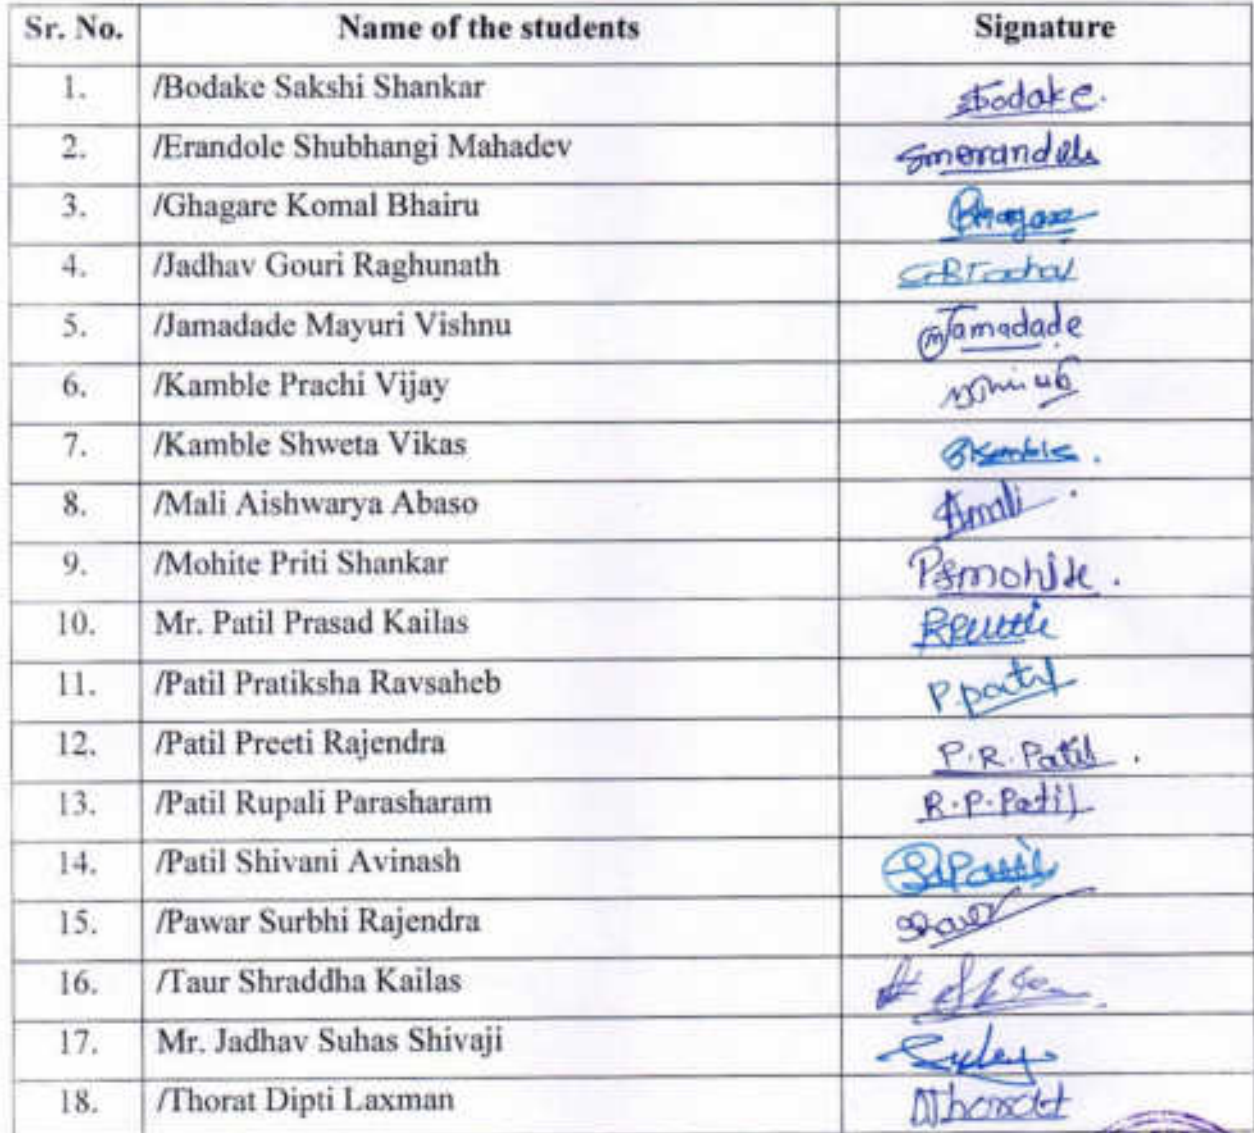 Sr. No. Name of the students Signature
1. /Bodake Sakshi Shankar Bodake.
2. /Erandole Shubhangi Mahadev Smerandole
3. /Ghagare Komal Bhairu Ghagare
4. /Jadhav Gouri Raghunath
5. /Jamadade Mayuri Vishnu Jamadade
6. /Kamble Prachi Vijay
7. /Kamble Shweta Vikas
8. /Mali Aishwarya Abaso Amali
9. /Mohite Priti Shankar PSmohite.
10. Mr. Patil Prasad Kailas
11. /Patil Pratiksha Ravsaheb P.patil
12. /Patil Preeti Rajendra P.R.Patil.
13. /Patil Rupali Parasharam R.P.Patil
14. /Patil Shivani Avinash
15. /Pawar Surbhi Rajendra
16. /Taur Shraddha Kailas
17. Mr. Jadhav Suhas Shivaji
18. /Thorat Dipti Laxman